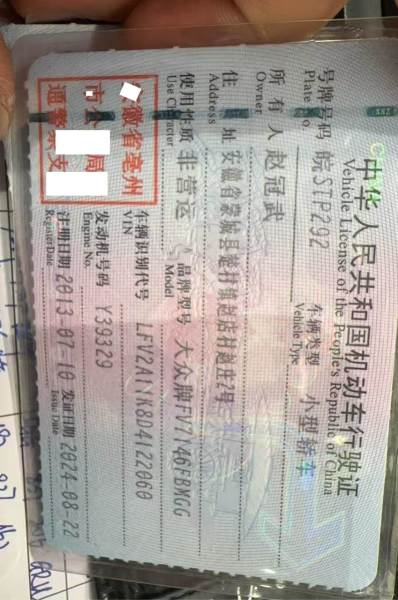 中华人民共和国机动车行驶证
Vehicle License of the People's Republic of China
号牌号码 皖STP292 车辆类型 小型轿车
Plate No. Vehicle Type
所有人 赵冠武
Owner
住址 安徽省蒙城县 村镇赵店村赵庄2号
Address
使用性质 非营运 品牌型号 大众牌FV7146FBMGG
Use Character Model
车辆识别代号 LFV2A11K8D4122060
VIN
发动机号码 Y39329
Engine No.
注册日期 2013-07-10 发证日期 2024-08-22
Register Date Issue Date
徽省亳州
市公 局
通警察支